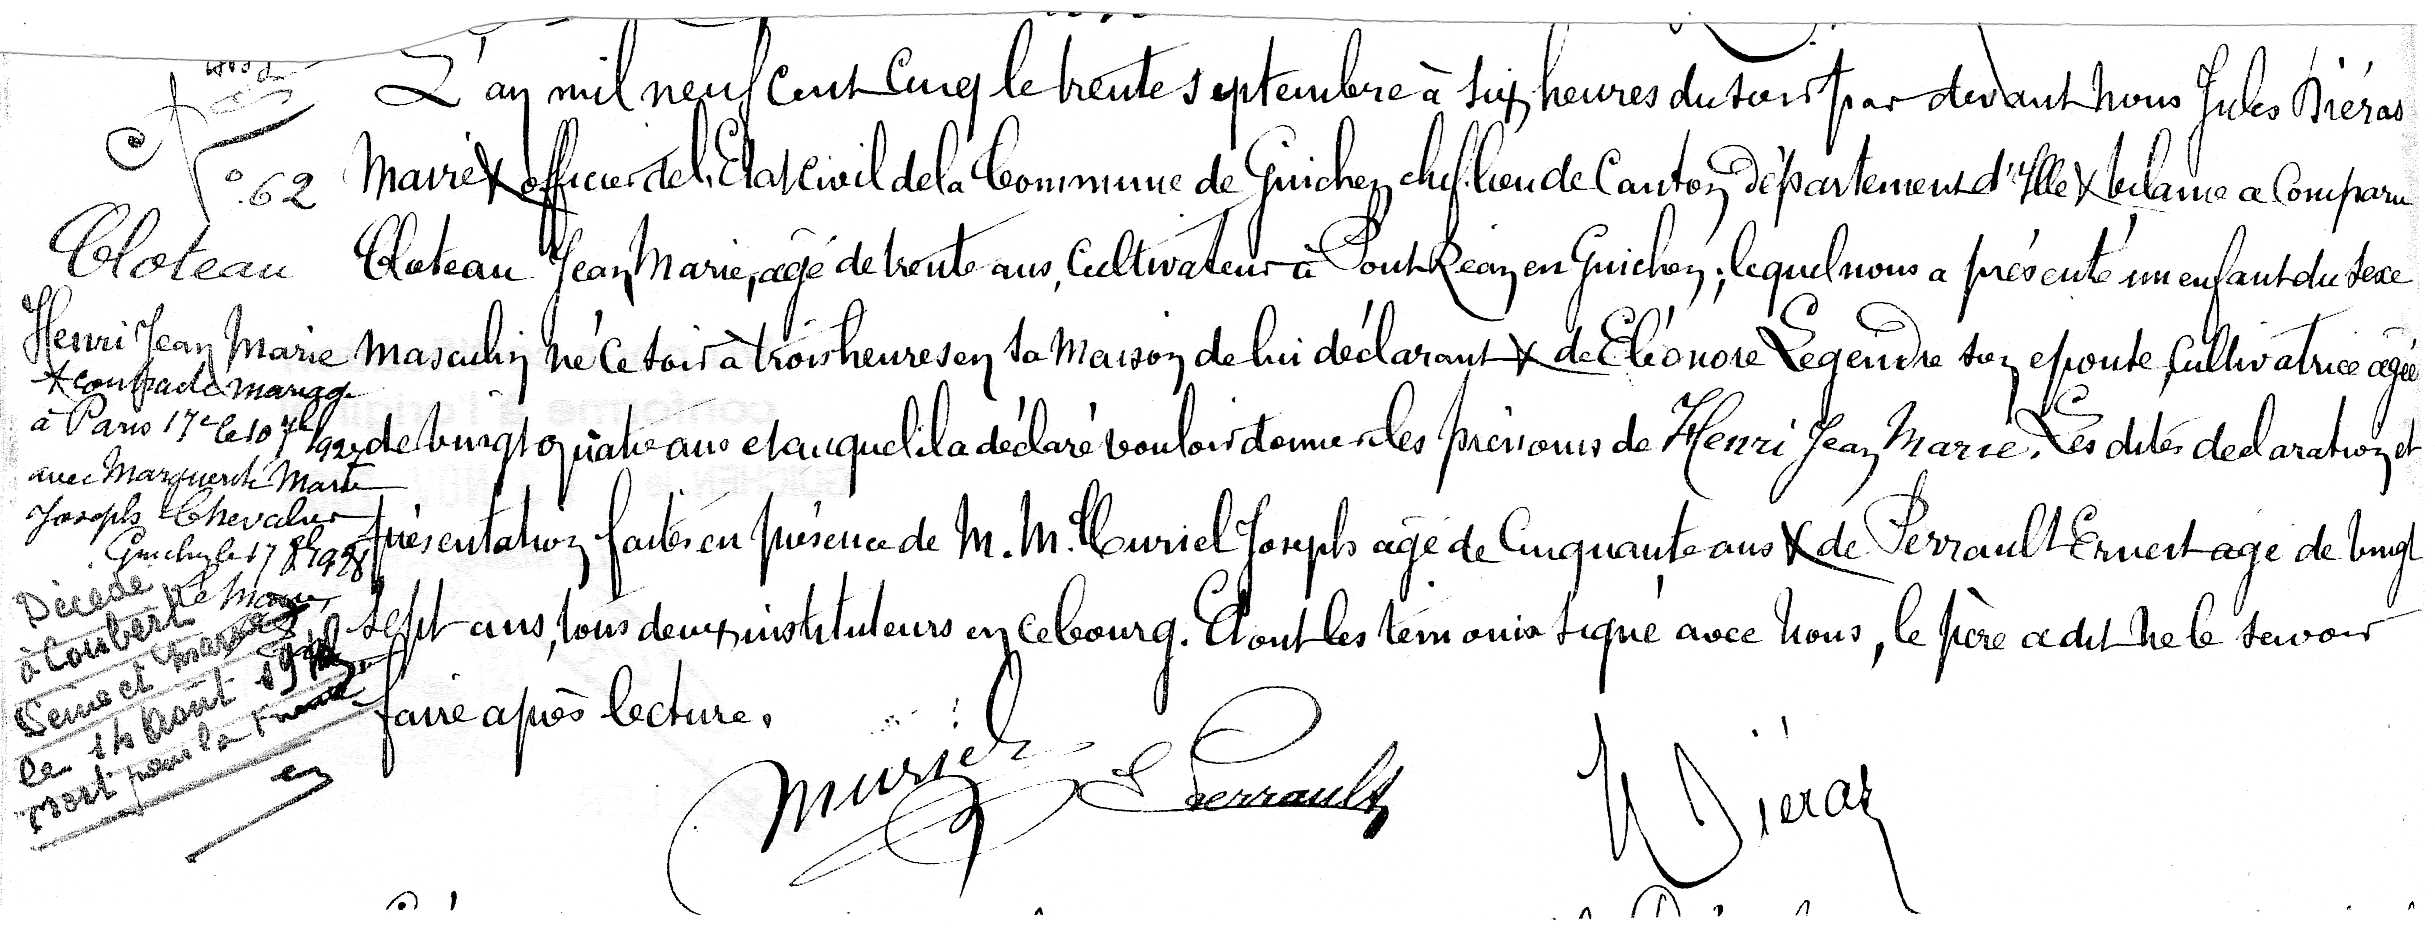 N° 62
Cloteau
Henri Jean Marie
X contracté mariage
à Paris 17e le 10 7bre
avec Marguerite Marie
Joseph Chevalier
Guichen le 17 8bre 1928
Le Maire,
Décédé
à Coubert
Seine et Marne
le 14 Août
Mort pour la France
L'an mil neuf cent cinq le trente septembre à six heures du soir par devant nous Jules Diéras
Maire & officier de l'Etat Civil de la Commune de Guichen chef-lieu de Canton Département d'Ille & Vilaine a Comparu
Cloteau Jean Marie, agé de trente ans, Cultivateur à Pont Réan en Guichen; lequel nous a présenté un enfant du sexe
masculin né ce soir à trois heures en sa maison de lui déclarant & de Eléonore Legendre son epouse, cultivatrice agée
de vingt quatre ans et auquel il a déclaré vouloir donner les prénoms de Henri Jean Marie. Les dites declaration et
présentation faites en présence de M. M. Muriel Joseph agé de Cinquante ans & de Perrault Ernest agé de vingt
sept ans, tous deux instituteurs en ce bourg. Et ont les témoins signé avec nous, le père a dit ne le savoir
faire après lecture.
Muriel E Perrault Diéras